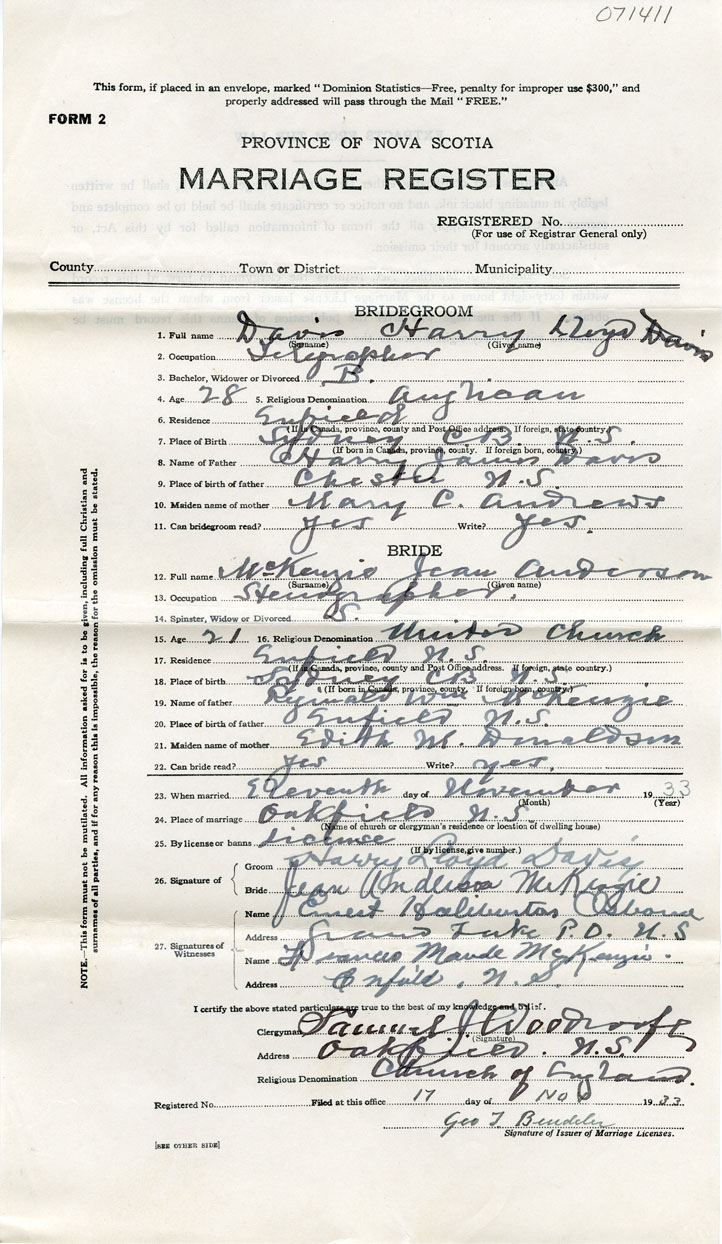 071411
This form, if placed in an envelope, marked "Dominion Statistics—Free, penalty for improper use $300," and
properly addressed will pass through the Mail "FREE."
FORM 2
PROVINCE OF NOVA SCOTIA
MARRIAGE REGISTER
REGISTERED No.
(For use of Registrar General only)
County Town or District Municipality
BRIDEGROOM
1. Full name Davis Harry Lloyd Davis
(Surname) (Given name)
2. Occupation Telegrapher
3. Bachelor, Widower or Divorced B.
4. Age 28 5. Religious Denomination Anglican
6. Residence Enfield
(If in Canada, province, county and Post Office address. If foreign, state country.)
7. Place of Birth Sydney C B N.S.
(If born in Canada, province, county. If foreign born, country.)
8. Name of Father Harry James Davis
9. Place of birth of father Chester N.S.
10. Maiden name of mother Mary C. Andrews
11. Can bridegroom read? yes Write? yes.
BRIDE
12. Full name McKenzie Jean Anderson
(Surname) (Given name)
13. Occupation Stenographer.
14. Spinster, Widow or Divorced S.
15. Age 21 16. Religious Denomination United Church
17. Residence Enfield N.S.
(If in Canada, province, county and Post Office address. If foreign, state country.)
18. Place of birth Sydney CB N.S.
(If born in Canada, province, county. If foreign born, country.)
19. Name of father Wm McKenzie
20. Place of birth of father Enfield N.S.
21. Maiden name of mother Edith M. Donaldson
22. Can bride read? yes Write? yes.
23. When married Eleventh day of November 1933
(Month) (Year)
24. Place of marriage Oakfield N.S.
(Name of church or clergyman's residence or location of dwelling house)
25. By license or banns License
(If by license, give number.)
26. Signature of Groom Harry Lloyd Davis
Bride Jean Anderson McKenzie
27. Signatures of Witnesses
Name Ernest Haliburton Osborne
Address P.O. N.S
Name Frances Maude McKenzie.
Address Enfield, N.S.
I certify the above stated particulars are true to the best of my knowledge and belief.
Clergyman Samuel J. Woodroofe
(Signature)
Address Oakfield. N.S.
Religious Denomination Church of England.
Registered No. Filed at this office 17 day of Nov 1933
Geo T Bendeler
Signature of Issuer of Marriage Licenses.
[SEE OTHER SIDE]
NOTE.—This form must not be mutilated. All information asked for is to be given, including full Christian and
surnames of all parties, and if for any reason this is impossible, the reason for the omission must be stated.